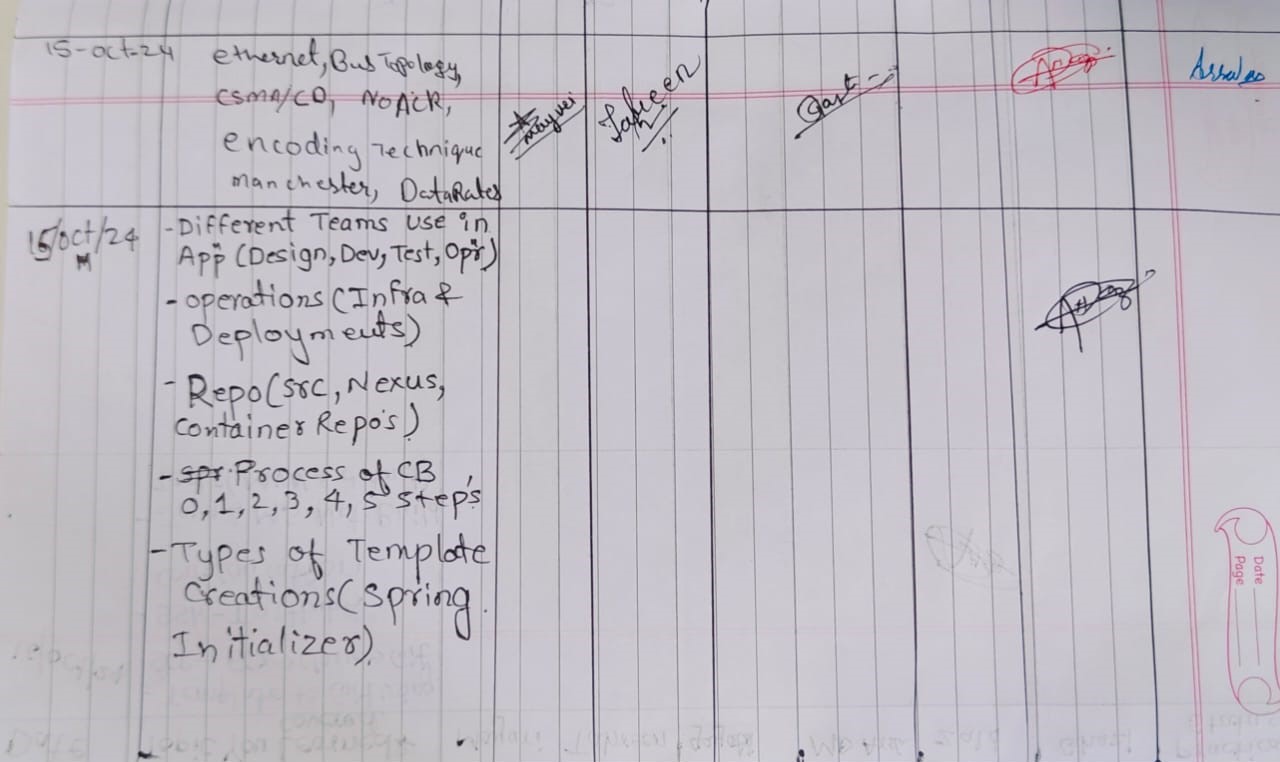 15-oct-24 ethernet, Bus Topology,
CSMA/CD, NoACK,
encoding Technique
manchester, DataRates
Mayuri
Tahseen
15/oct/24
M
- Different Teams use in
App (Design, Dev, Test, Opr)
- operations (Infra &
Deployments)
- Repo (src, Nexus,
Container Repo's)
- spr Process of CB
0, 1, 2, 3, 4, 5 step's
- Types of Template
Creations (Spring
Initializer)
Date
Page